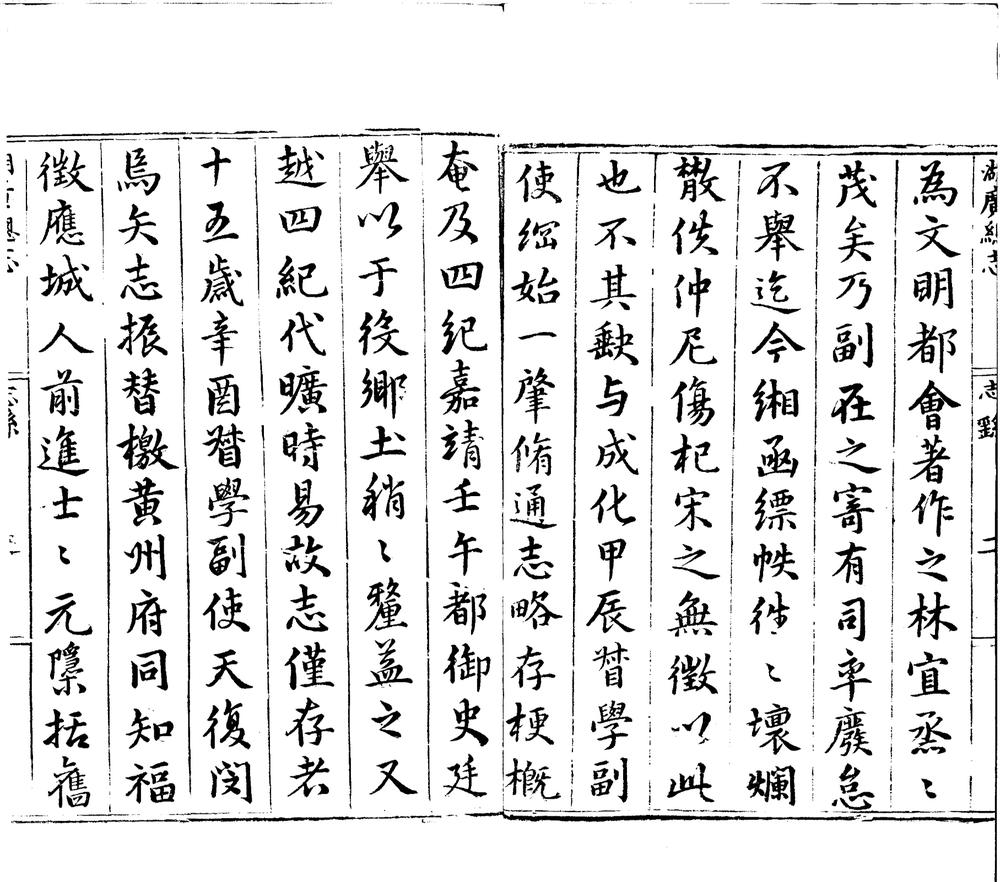 湖廣總志
志敘
二
為文明都會著作之林宜烝〻
茂矣乃副在之寄有司率廢怠
不舉迄今緗函縹帙徃〻壞爛
散佚仲尼傷杞宋之無徵以此
也不其缺与成化甲辰督學副
使綱始一肇脩通志略存梗概
奄及四紀嘉靖壬午都御史廷
舉以于役鄉土稍〻釐益之又
越四紀代曠時易故志僅存者
十五歲辛酉督學副使天復閔
焉矢志振替檄黃州府同知福
徵應城人前進士〻元隱括舊